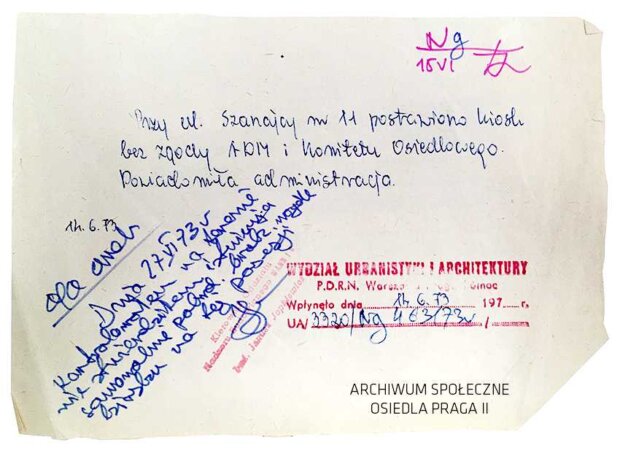 Ng
15 VI
Przy ul. Szanajcy nr 11 postawiono kiosk
bez zgody ADM i Komitetu Osiedlowego.
Powiadomiła administracja.
14.6.73
Dnia 27.VI.73r
Kontrolowałem na terenie
nie stwierdziłem istnienia
samowolnie postaw. brak
kiosku na tej posesji
WYDZIAŁ URBANISTYKI I ARCHITEKTURY
P.D.R.N. Warsza
Wpłynęło dnia 14.6.73 197
UA/3320/Ng 463/73r/
ARCHIWUM SPOŁECZNE
OSIEDLA PRAGA II